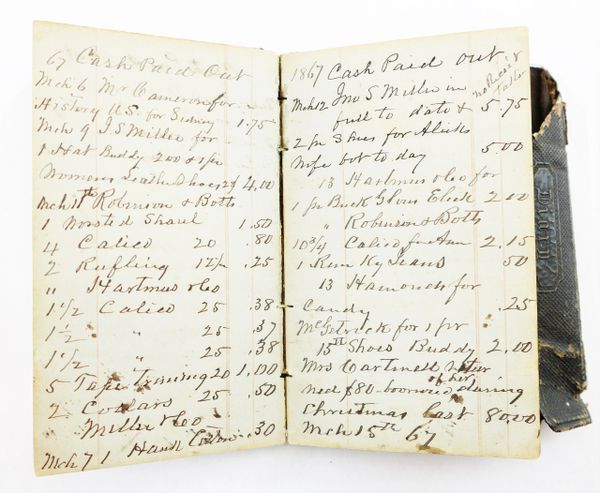 67 Cash Paid Out
Mch 6 Mr Cameron for
History U.S. for Sidney 1.75
Mch 9 J S Miller for
1 Hat Buddy 200 & 1 pr
Womens Leather Shoes 2 4.00
Mch 11th Robinson & Botts
1 Worsted Shaul 1.50
4 Calico 20 .80
2 Rufling 12 1/2 .25
" Hartmus & Co
1 1/2 Calico 25 .38
1 1/2 " 25 .37
1 1/2 " 25 .38
5 Tape Triming 20 1,00
2 Collars 25 .50
Miller & Co
Mch 7 1 Hand .30
1867 Cash Paid out
Mch 12 Jno S Miller in
full to date & 5.75
no Receipt
taken
2 pr Shoes for
Wife bot to day 5.00
13 Hartmus & Co for
1 pr Buck Gloves 2 00
" Robinson & Botts
10 3/4 Calico for Ann 2.15
1 Rem Ky Jeans 50
13 Hamonds for
Candy .25
McGetrick for 1 pr
15th Shoes Buddy 2,00
Mrs Cartmell
of her
ned $80 boorwed during
Christmas last 80.00
Mch 15th 67
DIARY